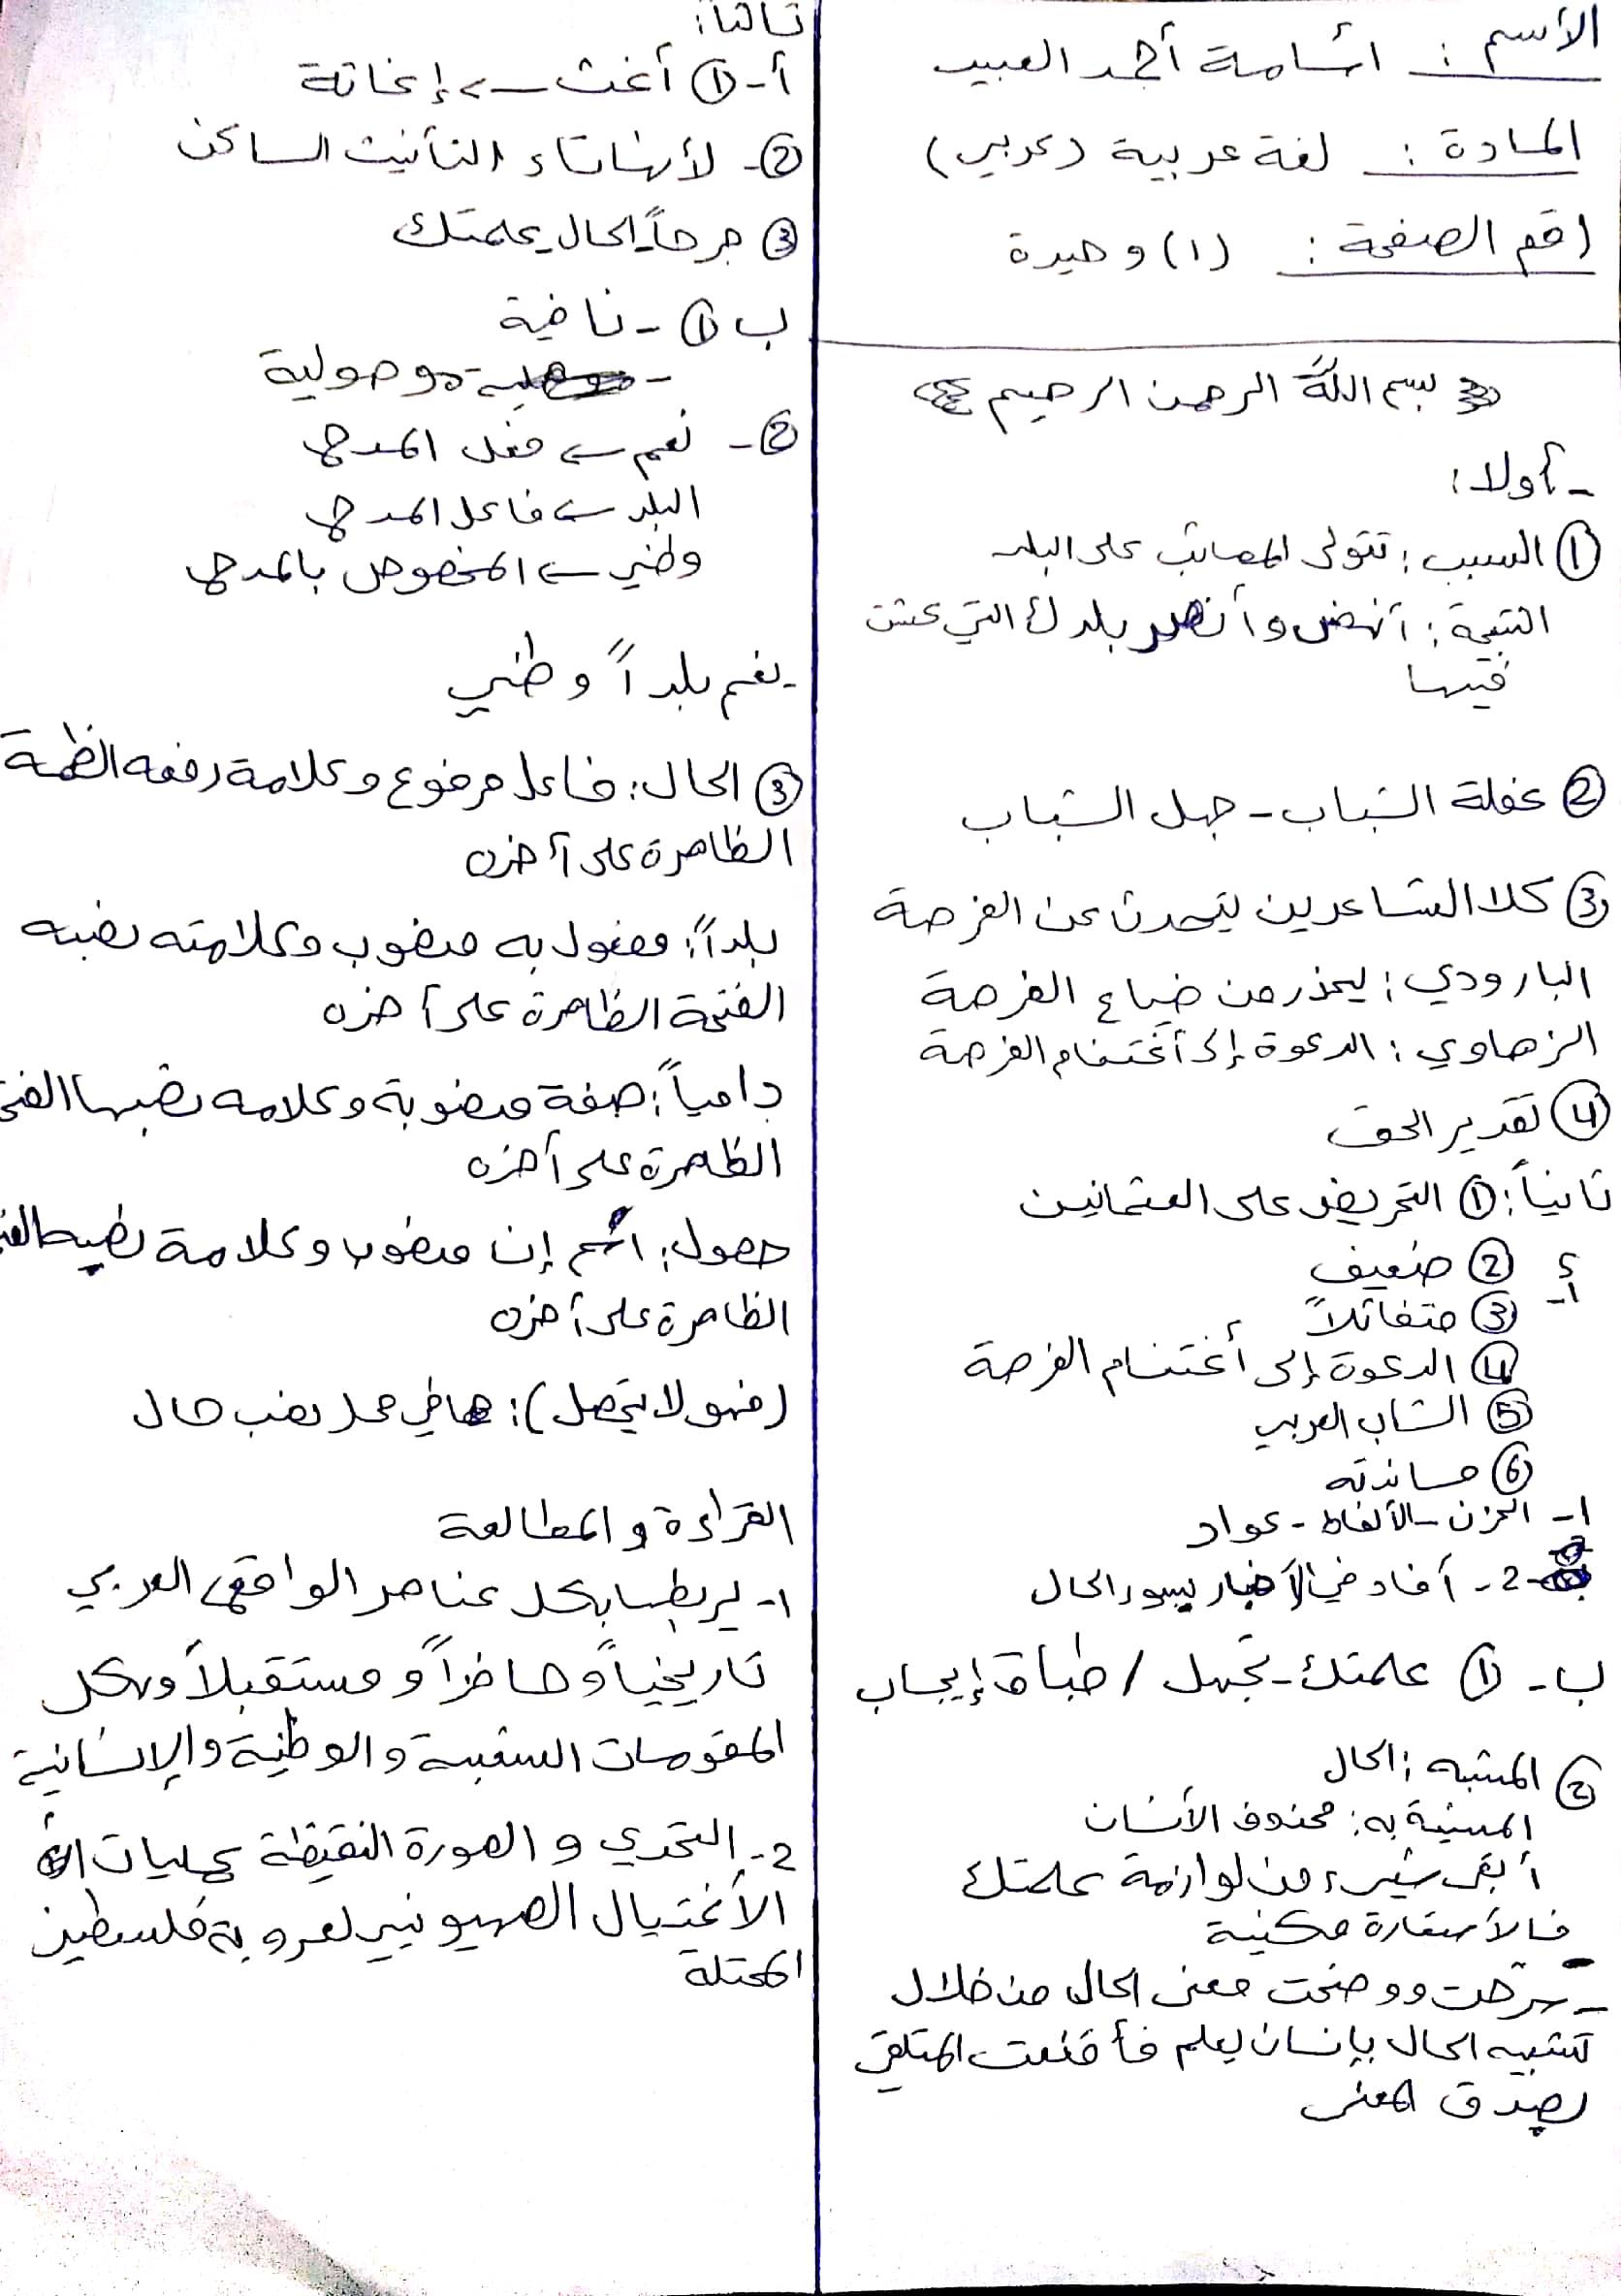 الأسم : اسامة أحمد العبيد
المادة : لغة عربية (عربي)
رقم الصفحة : (١) وحيدة
بسم الله الرحمن الرحيم
- أولا :
① السبب : تتولى المصائب على البلد
النتيجة : أنهض وأنظر بلدك التي عشت
فيها
② غفلة الشباب - جهل الشباب
③ كلا الشاعرين يتحدث عن الفرصة
البارودي : يحذر من ضياع الفرصة
الزهاوي : الدعوة إلى أغتنام الفرصة
④ تقدير الحق
ثانياً : ① التحريض على العثمانين
أ- ② ضعيف
③ متفائلاً
④ الدعوة إلى أغتنام الفرصة
⑤ الشاب العربي
⑥ مساندته
1- الحزن - الألفاظ - عواد
2- أفاد في الأخبار بسوء الحال
ب- ① علمتك - تجهل / طباق إيجاب
② المشبه : الحال
المشبة به : محذوف الأنسان
أبقى شيء من لوازمة علمتك
فالأستعارة مكنية
- شرحت ووضحت معنى الحال من خلال
تشبيه الحال بإنسان يعلم فأقنعت المتلقي
بصدق المعنى
ثالثاً :
أ- ① أغث ← إغاثة
②- لأنها تاء التأنيث الساكن
③ جرحاً - الحال يعلمتك
ب ① - نافية
- موصولية
②- نعم ← فعل المدح
البلد ← فاعل المدح
وطني ← المخصوص بالمدح
- نعم بلداً وطني
③ الحال : فاعل مرفوع وعلامة رفعه الظمة
الظاهرة على أخره
بلداً : مفعول به منصوب وعلامته نصبه
الفتحة الظاهرة على أخره
دامياً : صفة منصوبة وعلامه نصبها الفتح
الظاهرة على أخره
حصول : اسم إن منصوب وعلامة نصبه
الظاهرة على أخره
(فهو لا يتحصل) : ها في محل نصب حال
القراءة والمطالعة
1- يربطها بكل عناصر الواقع العربي
تاريخياً وحاضراً ومستقبلاً وبكل
المقومات الشعبية والوطنية والإنسانية
2- التحدي و الصورة النقيظة لعمليات
الأغتيال الصهيوني لعروبة فلسطين
المحتلة